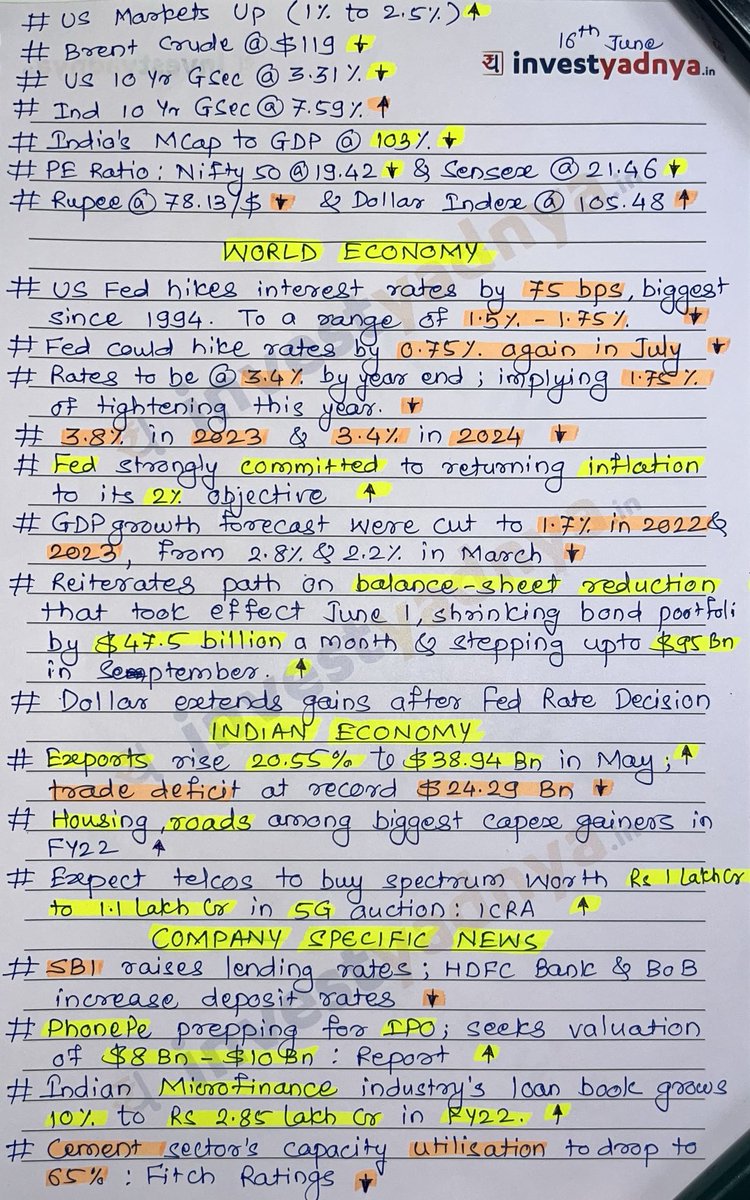 # US Markets Up (1% to 2.5%) ↑
16th June
# Brent Crude @ $119 ↓
य investyadnya.in
# US 10 Yr GSec @ 3.31% ↓
# Ind 10 Yr GSec @ 7.59% ↑
# India's MCap to GDP @ 103% ↓
# PE Ratio : Nifty 50 @ 19.42 ↓ & Sensex @ 21.46 ↓
# Rupee @ 78.13/$ ↓ & Dollar Index @ 105.48 ↑
WORLD ECONOMY
# US Fed hikes interest rates by 75 bps, biggest
since 1994. To a range of 1.5% - 1.75% ↓
# Fed could hike rates by 0.75% again in July ↓
# Rates to be @ 3.4% by year end ; implying 1.75%
of tightening this year. ↓
# 3.8% in 2023 & 3.4% in 2024 ↓
# Fed strongly committed to returning inflation
to its 2% objective ↑
# GDP growth forecast were cut to 1.7% in 2022 &
2023, from 2.8% & 2.2% in March ↓
# Reiterates path on balance-sheet reduction
that took effect June 1, shrinking bond portfoli
by $47.5 billion a month & stepping upto $95 Bn
in September. ↑
# Dollar extends gains after Fed Rate Decision
INDIAN ECONOMY
# Exports rise 20.55% to $38.94 Bn in May ; ↑
trade deficit at record $24.29 Bn ↓
# Housing, roads among biggest capex gainers in
FY22 ↑
# Expect telcos to buy spectrum worth Rs 1 lakh Cr
to 1.1 lakh Cr in 5G auction : ICRA ↑
COMPANY SPECIFIC NEWS
# SBI raises lending rates ; HDFC Bank & BoB
increase deposit rates ↓
# PhonePe prepping for IPO ; seeks valuation
of $8 Bn - $10 Bn : Report ↑
# Indian Microfinance industry's loan book grows
10% to Rs 2.85 lakh Cr in FY22. ↑
# Cement sector's capacity utilisation to drop to
65% : Fitch Ratings ↓